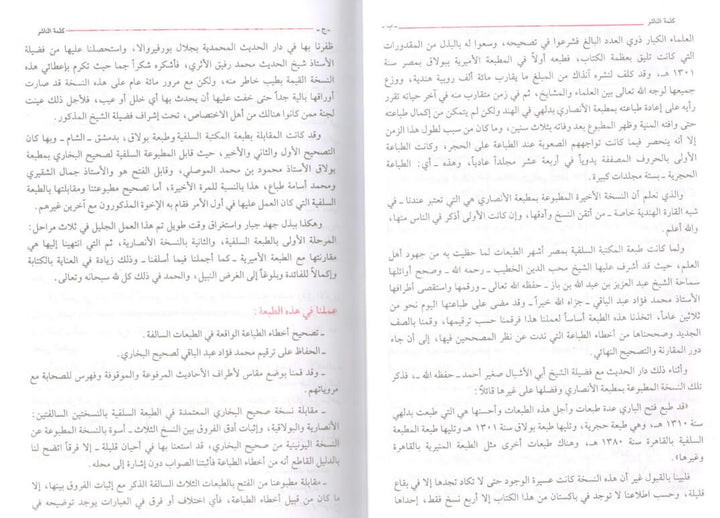 كلمة الناشر
- ب -
العلماء الكبار ذوي العدد البالغ فشرعوا في تصحيحه، وسعوا له بالبذل من المقدورات
التي كانت تليق بعظمة الكتاب، فطبعه أولاً في المطبعة الأميرية ببولاق بمصر سنة
١٣٠١ هـ، وقد كلف لنشره آنذاك من المبلغ ما يقارب مائة ألف روبية هندية، ووزع
جميعها لوجه الله تعالى بين العلماء والمشايخ، ثم في زمن متقارب منه في آخر حياته تقرر
رأيه على إعادة طباعته بمطبعة الأنصاري بدلهي في الهند ولكن لم يتمكن من إكمال طباعته
حتى وافته المنية وظهر المطبوع بعد وفاته بثلاث سنين، وما كان من سبب لطول هذا الزمن
إلا أنه ينحصر فيما كانت تواجههم الصعوبة عند الطباعة على الحجر، وكانت الطباعة
الأولى بالحروف المصففة يدوياً في أربعة عشر مجلداً عادياً، وهذه - أي: الطباعة
الحجرية - بستة مجلدات كبيرة.
والذي نعلم أن النسخة الأخيرة المطبوعة بمطبعة الأنصاري هي التي تعتبر عندنا - في
شبه القارة الهندية خاصة - من أتقن النسخ وأدقها، وإن كانت الأولى أذكر في الناس منها،
والله أعلم.
ولما كانت طبعة المكتبة السلفية بمصر أشهر الطبعات لما حظيت به من جهود أهل
العلم، حيث قد أشرف عليها الشيخ محب الدين الخطيب - رحمه الله - وصحح أوائلها
سماحة الشيخ عبد العزيز بن عبد الله بن باز - حفظه الله تعالى - ورقمها واستقصى أطرافها
الأستاذ محمد فؤاد عبد الباقي - جزاه الله خيراً - وقد مضى على طباعتها اليوم نحو من
ثلاثين عاماً، اتخذنا هذه الطبعة أساساً لعملنا هذا فرقمنا حسب ترقيمها، وقمنا بالصف
الجديد وصححناها من أخطاء الطباعة التي ندت عن نظر المصححين فيها، إلى أن جاء
دور المقارنة والتصحيح النهائي.
وأثناء ذلك دار الحديث مع فضيلة الشيخ أبي الأشبال صغير أحمد - حفظه الله -، فذكر
تلك النسخة المطبوعة بمطبعة الأنصاري وفضلها على غيرها قائلاً:
«قد طبع فتح الباري عدة طبعات وأجل هذه الطبعات وأحسنها هي التي طبعت بدلهي
سنة ١٣١٠ هـ، وهي طبعة حجرية، وتليها طبعة بولاق سنة ١٣٠١ هـ، وتليها طبعة
السلفية بالقاهرة سنة ١٣٨٠ هـ، وهناك طبعات أخرى مثل الطبعة المنيرية بالقاهرة
وغيرها».
فلبينا بالقبول غير أن هذه النسخة كانت عسيرة الوجود حتى لا تكاد تجدها إلا في بقاع
قليلة، وحسب اطلاعنا لا توجد في باكستان من هذا الكتاب إلا أربع نسخ فقط، إحداها
- ج -
كلمة الناشر
ظفرنا بها في دار الحديث المحمدية بجلال بورفيروالا، واستحصلنا عليها من فضيلة
الأستاذ شيخ الحديث محمد رفيق الأثري، فأشكره شكراً جما حيث تكرم بإعطائي هذه
النسخة القيمة بطيب خاطر منه، ولكن مع مرور مائة عام على هذه النسخة قد صارت
أوراقها بالية جداً حتى خفت عليها أن يحدث بها أي خلل أو عيب، فلأجل ذلك عينت
لجنة ممن كانوا هنالك من أهل الاختصاص، تحت إشراف فضيلة الشيخ المذكور.
وقد كانت المقابلة بطبعة المكتبة السلفية وطبعة بولاق، بدمشق - الشام - وبها كان
التصحيح الأول والثاني والأخير، حيث قابل المطبوعة السلفية لصحيح البخاري بمطبعة
بولاق الأستاذ محمود بن محمد الموصلي، وقابل الفتح هو والأستاذ جمال الشقيري
ومحمد أسامة طباع، هذا بالنسبة للمرة الأخيرة، أما تصحيح مطبوعتنا ومقابلتها بالطبعة
السلفية التي كان العمل عليها في أول الأمر فقام به الإخوة المذكورون مع آخرين غيرهم.
وهكذا ببذل جهد جبار واستغراق وقت طويل تم هذا العمل الجليل في ثلاث مراحل:
المرحلة الأولى بالطبعة السلفية، والثانية بالنسخة الأنصارية، ثم التي انتهينا إليها هي
مقارنتها مع الطبعة الأميرية - كما أجملنا فيما أسلفنا - وذلك زيادة في العناية بالكتابة
وإكمالاً للفائدة وبلوغاً إلى الغرض النبيل، والحمد في ذلك كل لله سبحانه وتعالى.
عملنا في هذه الطبعة:
- تصحيح أخطاء الطباعة الواقعة في الطبعات السالفة.
- الحفاظ على ترقيم محمد فؤاد عبد الباقي لصحيح البخاري.
- وقد قمنا بوضع مقاس لأطراف الأحاديث المرفوعة والموقوفة وفهرس للصحابة مع
مروياتهم.
- مقابلة نسخة صحيح البخاري المعتمدة في الطبعة السلفية بالنسختين السالفتين:
الأنصارية والبولاقية، وإثبات أدق الفروق بين النسخ الثلاث - أسوة بالنسخة المطبوعة عن
النسخة اليونينية من صحيح البخاري، قد استعنا بها في أحيان قليلة - إلا فرقاً اتضح لنا
بالدليل القاطع أنه من أخطاء الطباعة فأثبتنا الصواب دون إشارة إلى محله.
- مقابلة مطبوعتنا من الفتح بالطبعات الثلاث السالفة الذكر مع إثبات الفروق بينها، إلا
ما كان من قبيل أخطاء الطباعة، فأي اختلاف أو فرق في العبارات يوجد توضيحه في